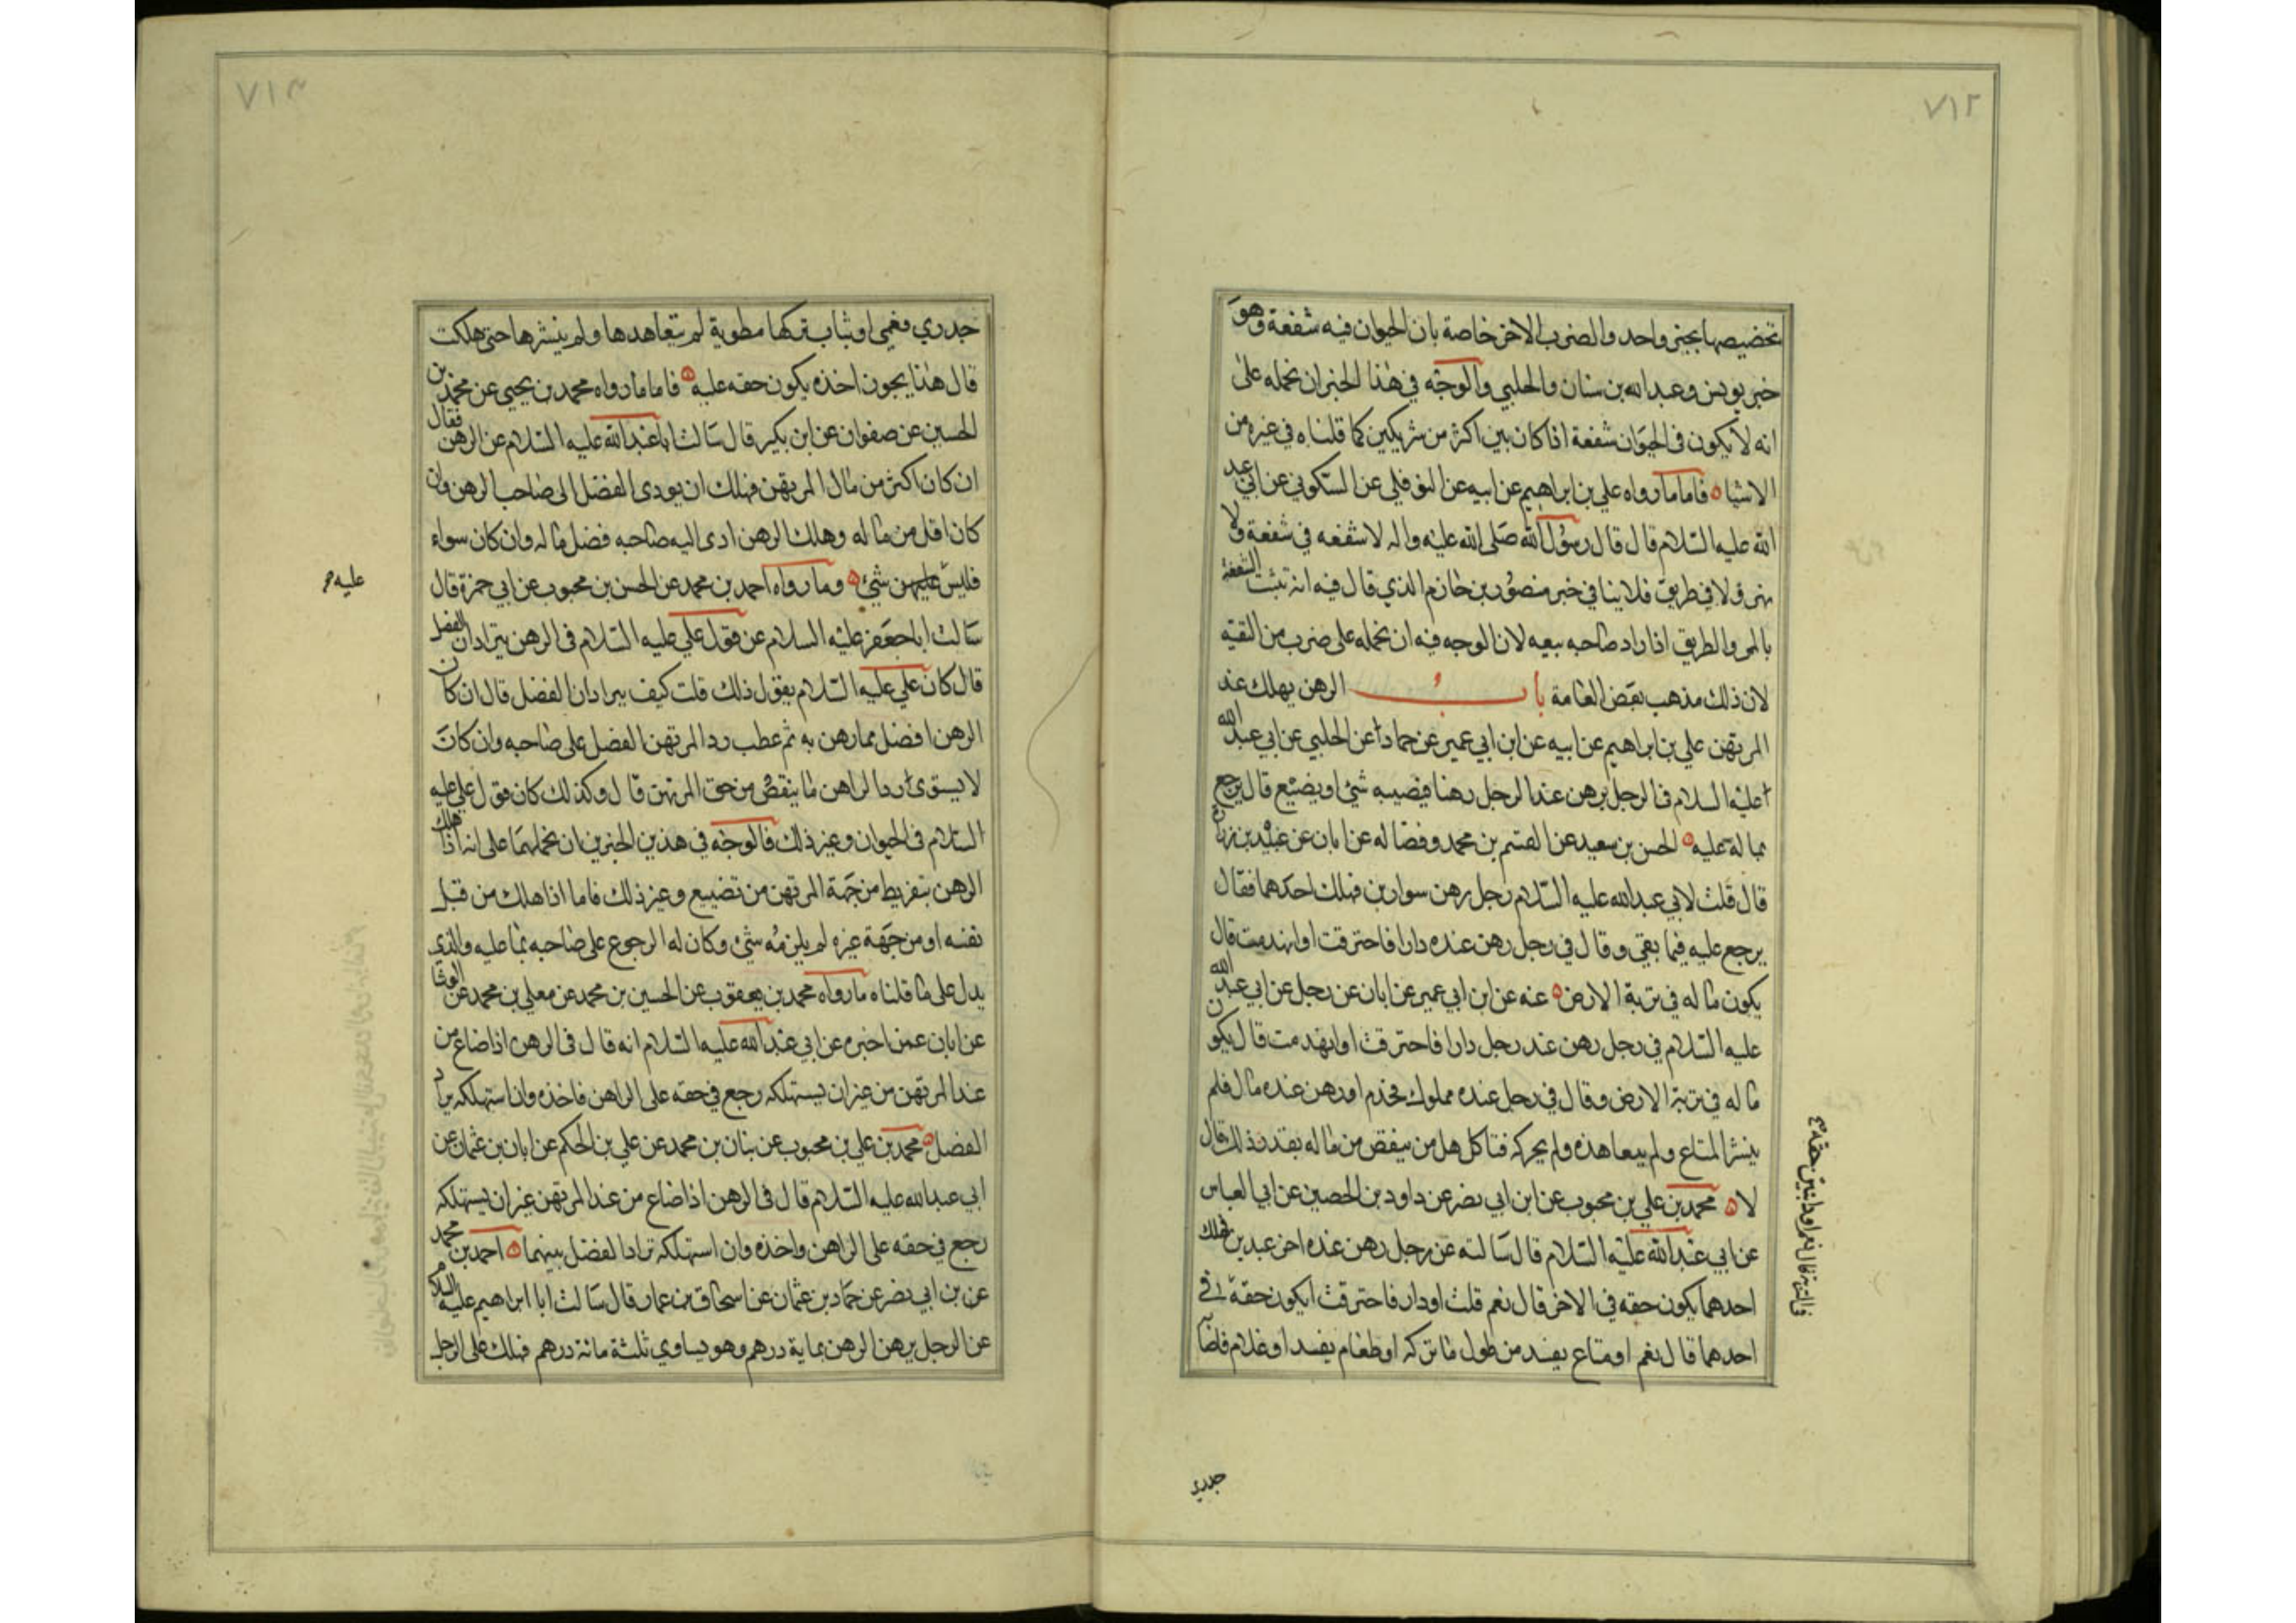 ٧١٢
تخصيصها بخبر واحد والضرب الاخر خاصة بان الحيوان فيه شفعة وهو
خبر يونس وعبد الله بن سنان والحلبي والوجه في هذا الخبر ان نحمله على
انه لا يكون في الحيوان شفعة اذا كان بين اكثر من شريكين كما قلناه في غيره من
الاشيا فاما ما رواه علي بن ابراهيم عن ابيه عن النوفلي عن السكوني عن ابي عبد
الله عليه السلام قال قال رسول الله صلى الله عليه واله لا شفعه في شفعة ولا
نهر ولا في طريق فلا ينافي خبر منصور بن حازم الذي قال فيه انه تثبت الشفعة
بالمر والطريق اذا راد صاحبه بيعه لان الوجه فيه ان نحمله على ضرب من التقية
لان ذلك مذهب بعض العامة باب الرهن يهلك عند
المرتهن علي بن ابراهيم عن ابيه عن ابن ابي عمير عن حماد عن الحلبي عن ابي عبد الله
عليه السلام في الرجل يرهن عند الرجل رهنا فيصيبه شئ او يضيع قال يرجع
بماله عليه الحسن بن سعيد عن القسم بن محمد وفضاله عن ابان عن عبيد بن زرارة
قال قلت لابي عبد الله عليه السلام رجل رهن سوارين فهلك احدهما فقال
يرجع عليه فيما بقي وقال في رجل رهن عنده دارا فاحترقت او انهدمت قال
يكون ماله في تربة الارض عنه عن ابن ابي عمير عن ابان عن رجل عن ابي عبد الله
عليه السلام في رجل رهن عند رجل دارا فاحترقت او انهدمت قال يكون
ماله في تربة الارض وقال في رجل عنده مملوك فجذم او رهن عنده مال فلم
ينشر المتاع ولم يتعاهده ولم يحركه فتاكل هل من ينقص من ماله بقدر ذلك قال
لا محمد بن علي بن محبوب عن ابن ابي نصر عن داود بن الحصين عن ابي العباس
عن ابي عبد الله عليه السلام قال سالته عن رجل رهن عنده اخر عبدين فهلك
احدهما يكون حقه في الاخر قال نعم قلت او دار فاحترقت ايكون حقه في
احدهما قال نعم او متاع يفسد من طول ما تركه او طعام يفسد او غلام فاصابه
في التربة قال نعم او دابتين حقه
جدري
٧١٣
جدري فعمي او ثياب تركها مطوية لم يتعاهدها ولم ينشرها حتى هلكت
قال هذا يجوز اخذه يكون حقه عليه فاما ما رواه محمد بن يحيى عن محمد بن
الحسين عن صفوان عن ابن بكير قال سالت ابا عبد الله عليه السلام عن الرهن فقال
ان كان اكثر من مال المرتهن فهلك ان يودى الفضل الى صاحب الرهن وان
كان اقل من ماله وهلك الرهن ادى اليه صاحبه فضل ماله وان كان سواء
فليس عليهن شئ وما رواه احمد بن محمد عن الحسن بن محبوب عن ابي حمزة قال
عليه
سالت ابا جعفر عليه السلام عن قول علي عليه السلام في الرهن يترادان الفضل
قال كان علي عليه السلام يقول ذلك قلت كيف يترادان الفضل قال ان كان
الرهن افضل مما رهن به ثم عطب رد المرتهن الفضل على صاحبه وان كان
لا يسوى رد الراهن ما ينقص من حق المرتهن قال وكذلك كان قول علي عليه
السلام في الحيوان وغير ذلك فالوجه في هذين الخبرين ان نحملهما على انه اذا هلك
الرهن بتفريط من جهة المرتهن من تضييع وغير ذلك فاما اذا هلك من قبل
نفسه او من جهة غيره لم يلزمه شئ وكان له الرجوع على صاحبه بما عليه والذي
يدل على ما قلناه ما رواه محمد بن يعقوب عن الحسين بن محمد عن معلي بن محمد عن الوشا
عن ابان عمن اخبره عن ابي عبد الله عليه السلام انه قال في الرهن اذا ضاع من
عند المرتهن من غير ان يستهلكه رجع في حقه على الراهن فاخذه وان استهلكه تراد
الفضل محمد بن علي بن محبوب عن بنان بن محمد عن علي بن الحكم عن ابان بن عثمان عن
ابي عبد الله عليه السلام قال في الرهن اذا ضاع من عند المرتهن غير ان يستهلكه
رجع في حقه على الراهن واخذه وان استهلكه ترادا الفضل بينهما احمد بن محمد
عن بن ابي نصر عن حماد بن عثمان عن اسحاق بن عمار قال سالت ابا ابراهيم عليه السلام
عن الرجل يرهن الرهن بماية درهم وهو يساوي ثلثة مائة درهم فهلك على الرجل